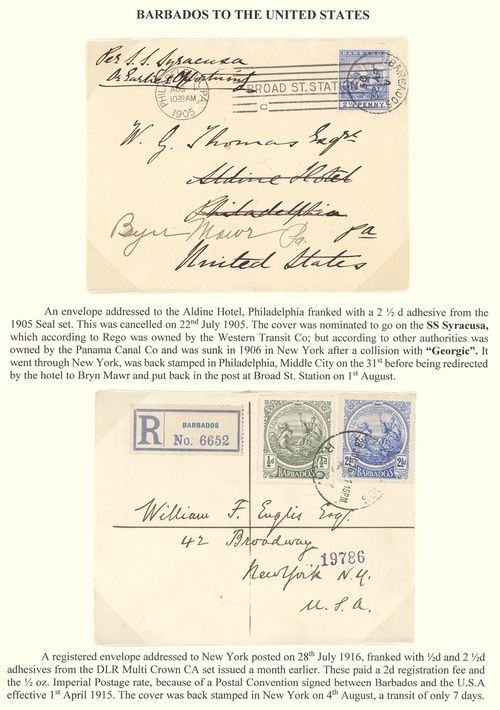 BARBADOS TO THE UNITED STATES
Per S.S. Syracusa
Or Earliest Opportunity
PHIL PA
AUG
10 30 AM
1905
BROAD ST. STATION
C
BARBADOS
2½ PENNY
W. G. Thomas Esqre
Aldine Hotel
Philadelphia
Bryn Mawr Pa.
Pa
United States
An envelope addressed to the Aldine Hotel, Philadelphia franked with a 2 ½ d adhesive from the
1905 Seal set. This was cancelled on 22nd July 1905. The cover was nominated to go on the SS Syracusa,
which according to Rego was owned by the Western Transit Co; but according to other authorities was
owned by the Panama Canal Co and was sunk in 1906 in New York after a collision with “Georgic”. It
went through New York, was back stamped in Philadelphia, Middle City on the 31st before being redirected
by the hotel to Bryn Mawr and put back in the post at Broad St. Station on 1st August.
R
BARBADOS
No. 6652
½d ½d
BARBADOS
2½d 2½d
BARBADOS
William F. Englis Esq.
42 Broadway
19786
New York N.Y.
U.S.A.
A registered envelope addressed to New York posted on 28th July 1916, franked with ½d and 2 ½d
adhesives from the DLR Multi Crown CA set issued a month earlier. These paid a 2d registration fee and
the ½ oz. Imperial Postage rate, because of a Postal Convention signed between Barbados and the U.S.A
effective 1st April 1915. The cover was back stamped in New York on 4th August, a transit of only 7 days.